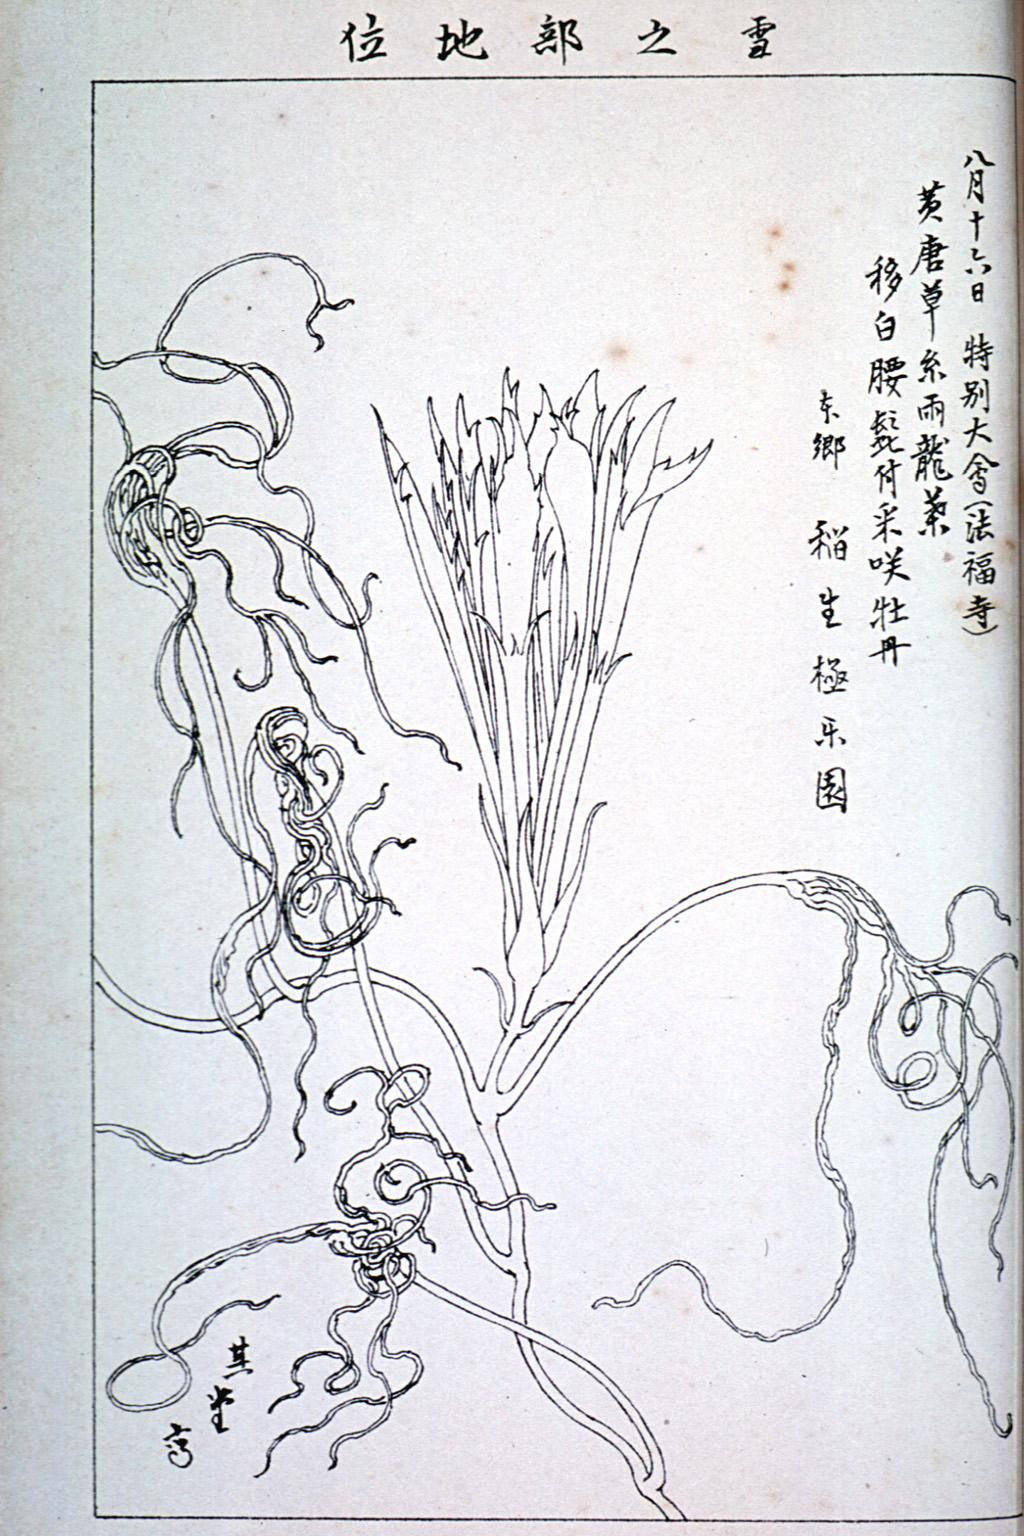 雪之部地位
八月十六日 特別大會(法福寺)
黄唐草糸雨龍葉
移白腰髭付采咲牡丹
东郷 稲生極乐園
其堂
写